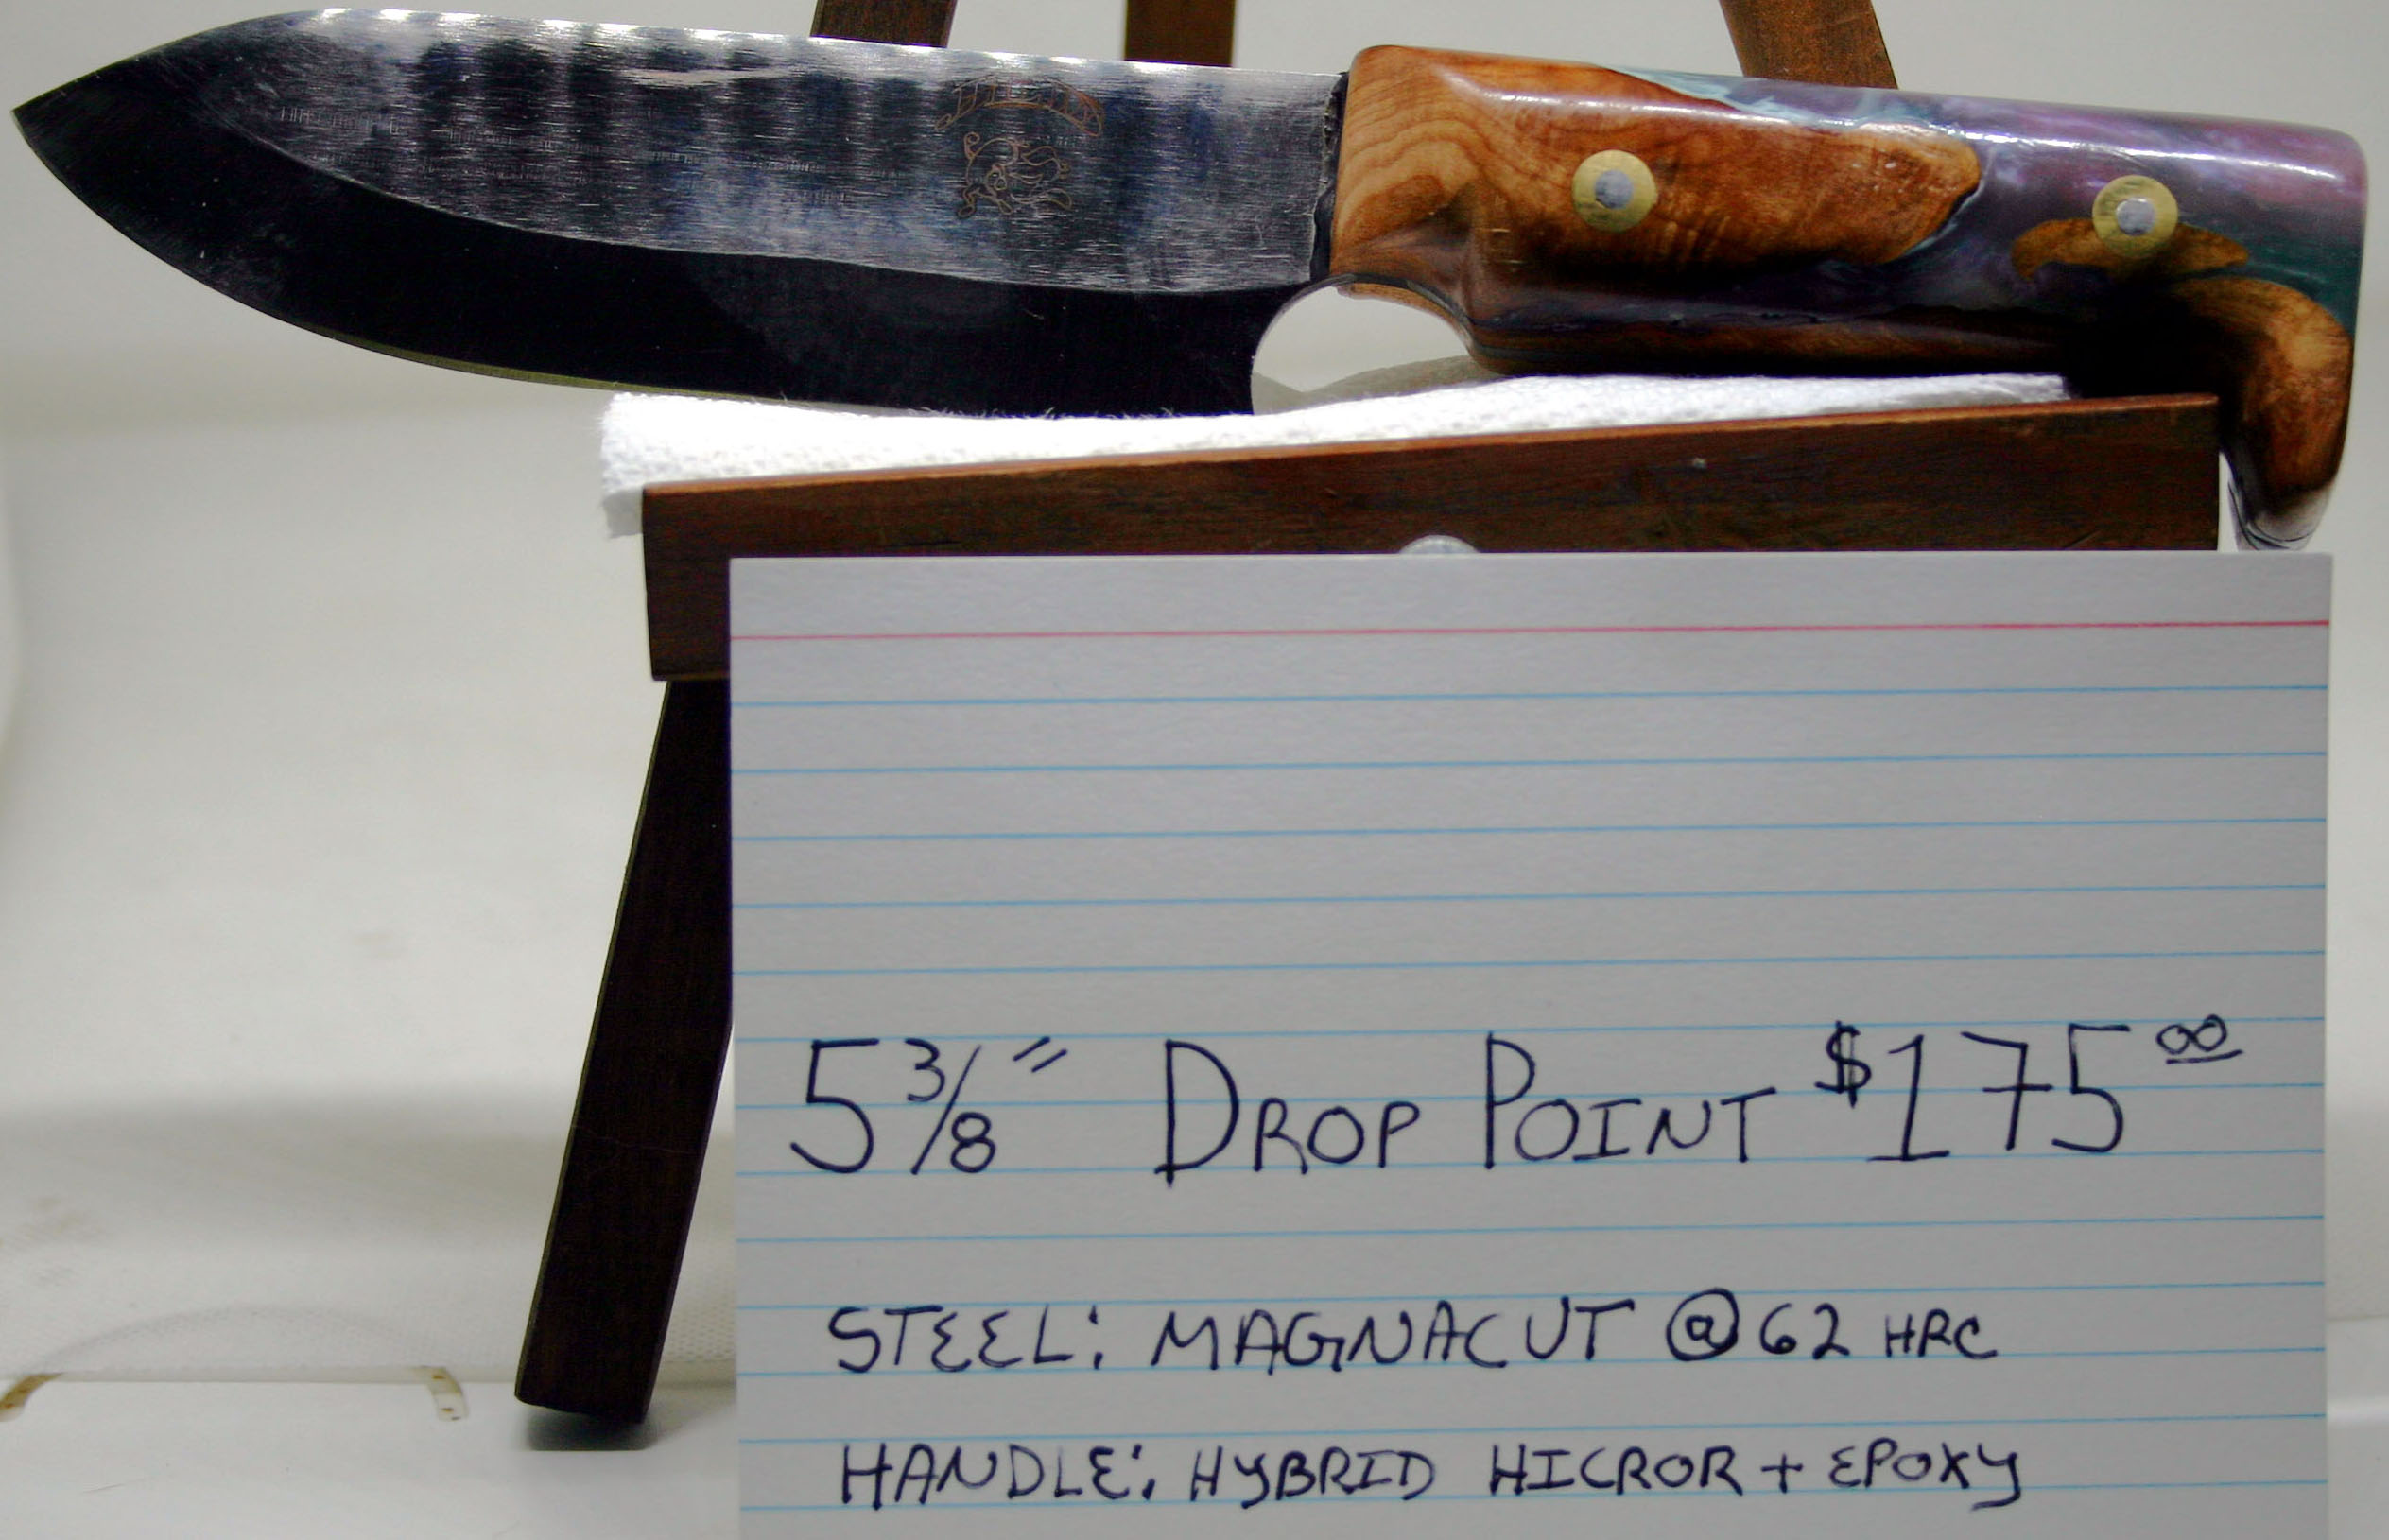 5 3/8" DROP POINT $175 00
STEEL: MAGNACUT @ 62 HRC
HANDLE: HYBRID HICROR + EPOXY